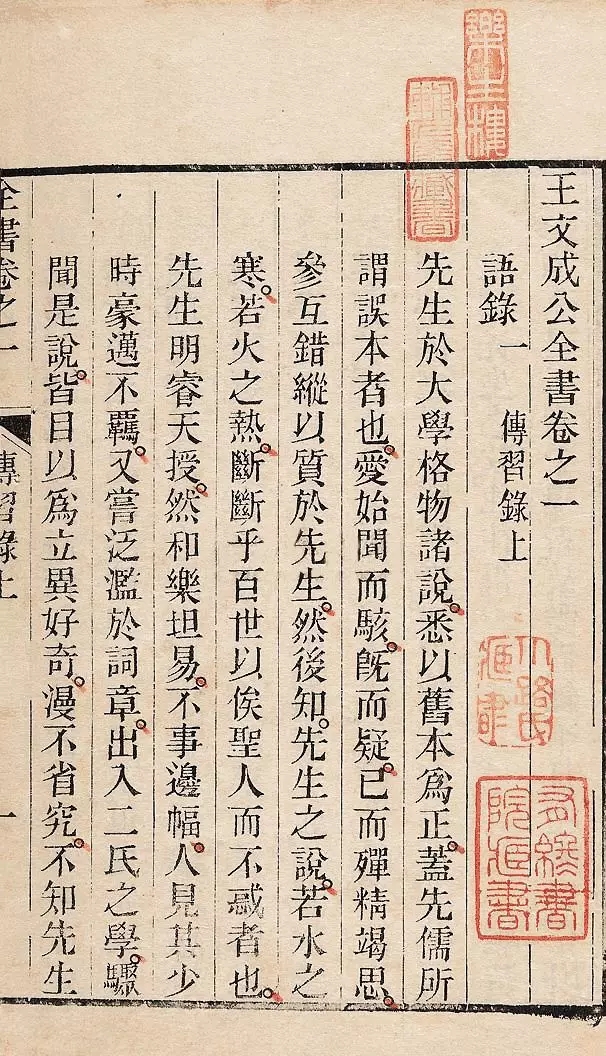 王文成公全書卷之一
語錄一 傳習錄上
先生於大學格物諸說。悉以舊本爲正。蓋先儒所
謂誤本者也。愛始聞而駭。旣而疑。已而殫精竭思。
參互錯縱以質於先生。然後知。先生之說。若水之
寒。若火之熱。斷斷乎百世以俟聖人而不惑者也。
先生明睿天授。然和樂坦易。不事邊幅。人見其少
時豪邁不羈。又嘗泛濫於詞章。出入二氏之學。驟
聞是說。皆目以爲立異好奇。漫不省究。不知先生
全書卷之一 傳習錄上 一
樂土樓
藏書